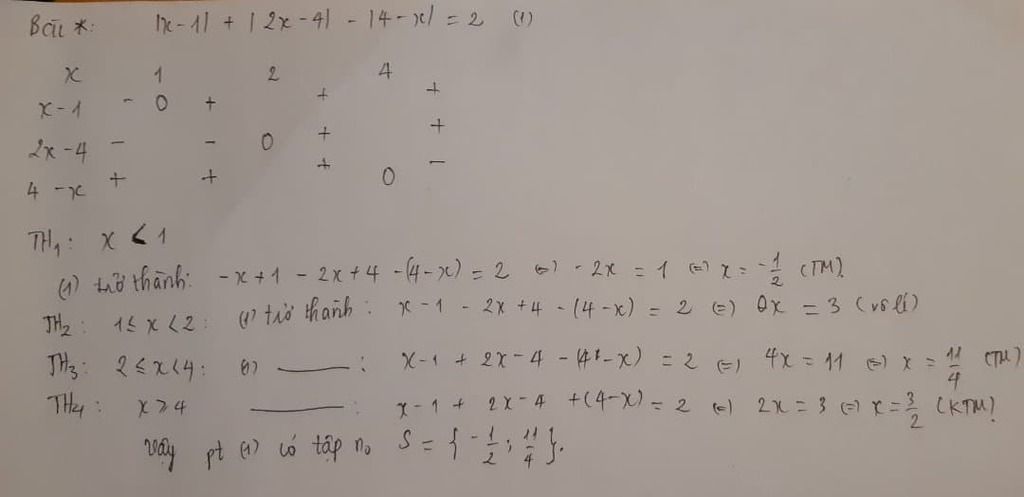 Bài *: |x-1| + |2x-4| - |4-x| = 2 (1)
x 1 2 4
x-1 - 0 + + +
2x-4 - - 0 + +
4-x + + + 0 -
TH1: x < 1
(1) trở thành: -x+1 - 2x+4 -(4-x) = 2 (=) -2x = 1 (=) x = -1/2 (TM).
TH2: 1≤ x < 2: (1) trở thành: x-1 - 2x+4 - (4-x) = 2 (=) 0x = 3 (vô lí)
TH3: 2 ≤ x < 4: (1) ——— : x-1 + 2x-4 -(4-x) = 2 (=) 4x = 11 (=) x = 11/4 (TM)
TH4: x ≥ 4 ——— : x-1 + 2x-4 +(4-x) = 2 (=) 2x = 3 (=) x = 3/2 (KTM)
Vậy pt (1) có tập no S = { -1/2 ; 11/4 }.